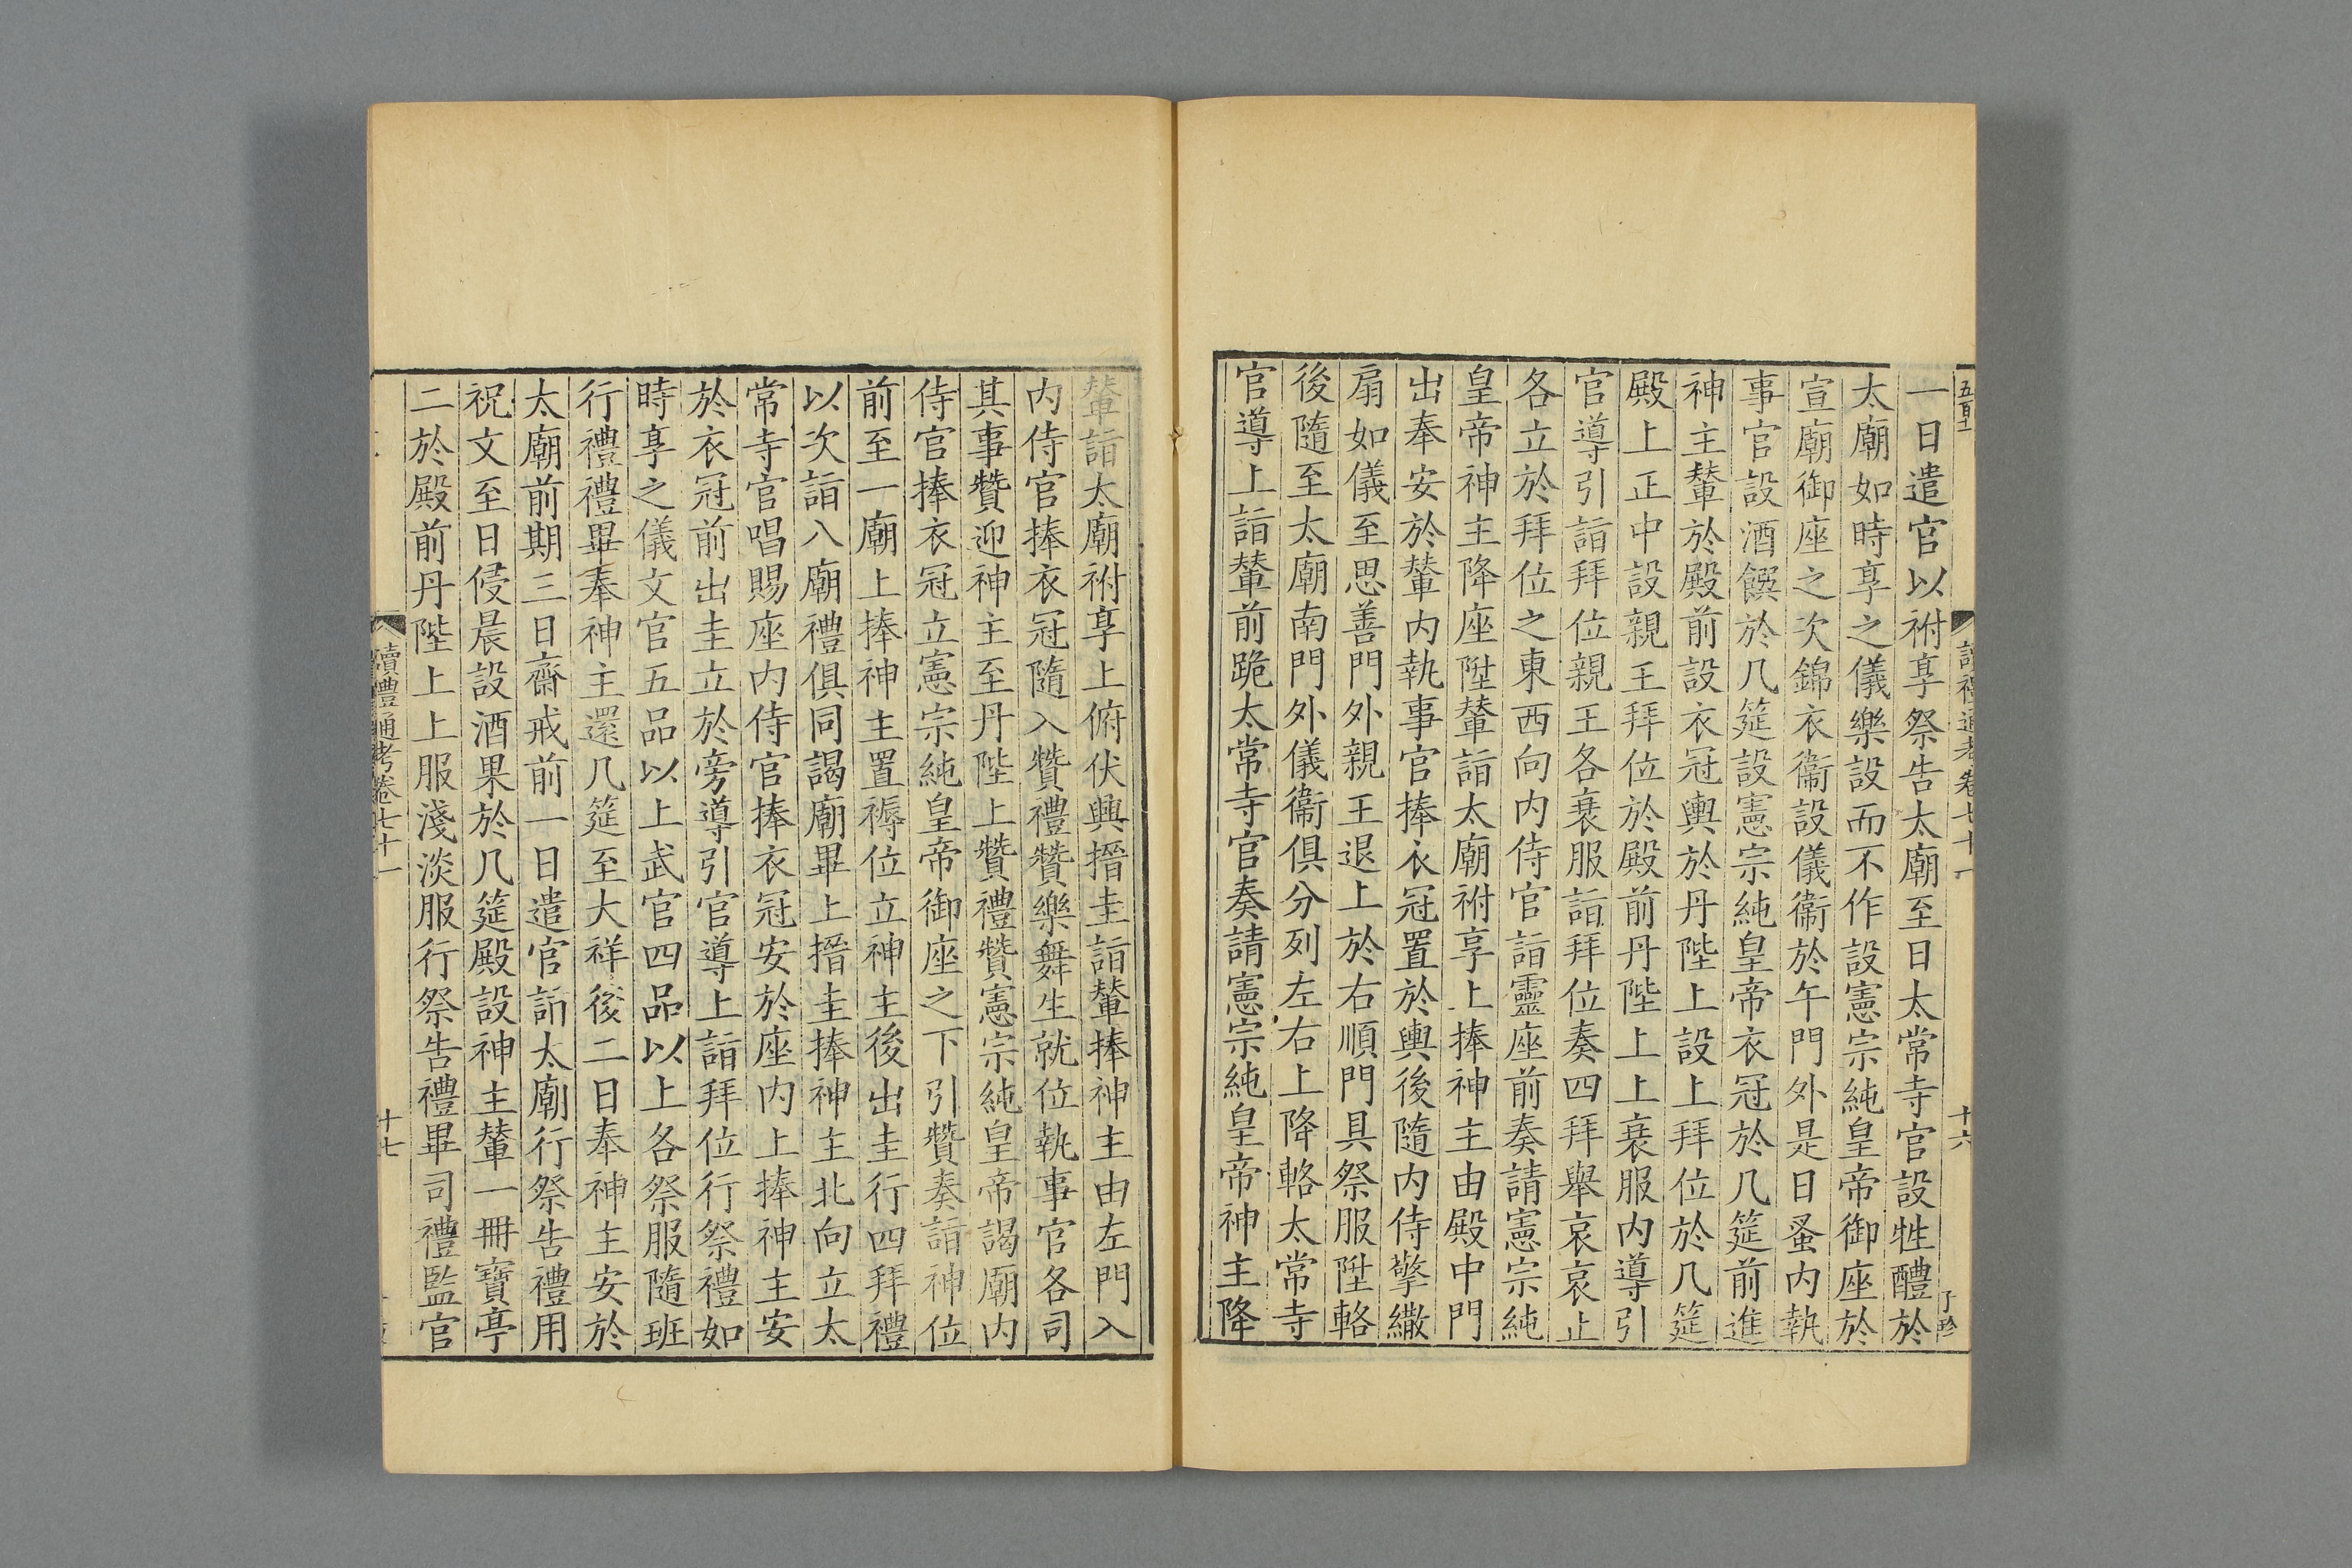 一日遣官以祔享祭告太廟至日太常寺官設牲醴於
太廟如時享之儀樂設而不作設憲宗純皇帝御座於
宣廟御座之次錦衣衞設儀衞於午門外是日蚤内執
事官設酒饌於几筵設憲宗純皇帝衣冠於几筵前進
神主輦於殿前設衣冠輿於丹陛上設上拜位於几筵
殿上正中設親王拜位於殿前丹陛上上衰服内導引
官導引詣拜位親王各衰服詣拜位奏四拜舉哀哀止
各立於拜位之東西向内侍官詣靈座前奏請憲宗純
皇帝神主降座陞輦詣太廟祔享上捧神主由殿中門
出奉安於輦内執事官捧衣冠置於輿後隨内侍擎繖
扇如儀至思善門外親王退上於右順門具祭服陞輅
後隨至太廟南門外儀衞俱分列左右上降輅太常寺
官導上詣輦前跪太常寺官奏請憲宗純皇帝神主降
讀禮通考卷七十一
十六
輦詣太廟祔享上俯伏興搢圭詣輦捧神主由左門入
内侍官捧衣冠隨入贊禮贊樂舞生就位執事官各司
其事贊迎神主至丹陛上贊禮贊憲宗純皇帝謁廟内
侍官捧衣冠立憲宗純皇帝御座之下引贊奏詣神位
前至一廟上捧神主置褥位立神主後出圭行四拜禮
以次詣八廟禮俱同謁廟畢上搢圭捧神主北向立太
常寺官唱賜座内侍官捧衣冠安於座内上捧神主安
於衣冠前出圭立於旁導引官導上詣拜位行祭禮如
時享之儀文官五品以上武官四品以上各祭服隨班
行禮禮畢奉神主還几筵至大祥後二日奉神主安於
太廟前期三日齋戒前一日遣官詣太廟行祭告禮用
祝文至日侵晨設酒果於几筵殿設神主輦一冊寶亭
二於殿前丹陛上上服淺淡服行祭告禮畢司禮監官
讀禮通考卷七十一
十七